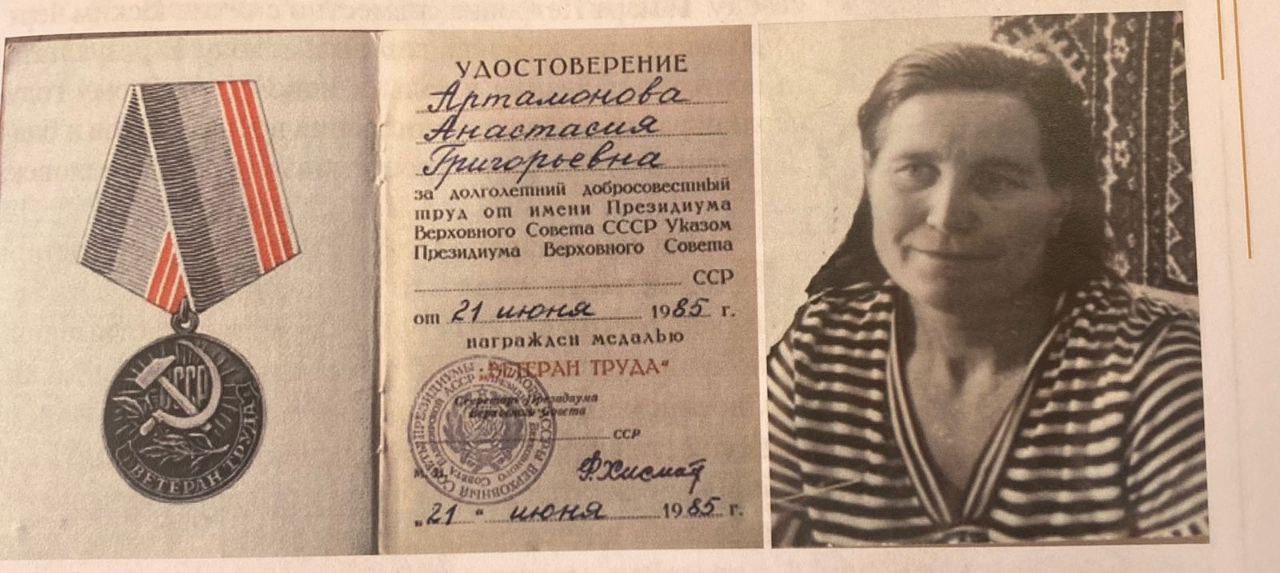 СССР
ВЕТЕРАН ТРУДА
УДОСТОВЕРЕНИЕ
Артамонова
Анастасия
Григорьевна
за долголетний добросовестный
труд от имени Президиума
Верховного Совета СССР Указом
Президиума Верховного Совета
ССР
от 21 июня 1985 г.
награжден медалью
„ВЕТЕРАН ТРУДА“
Секретарь Президиума
Верховного Совета
ССР
„21“ июня 1985 г.